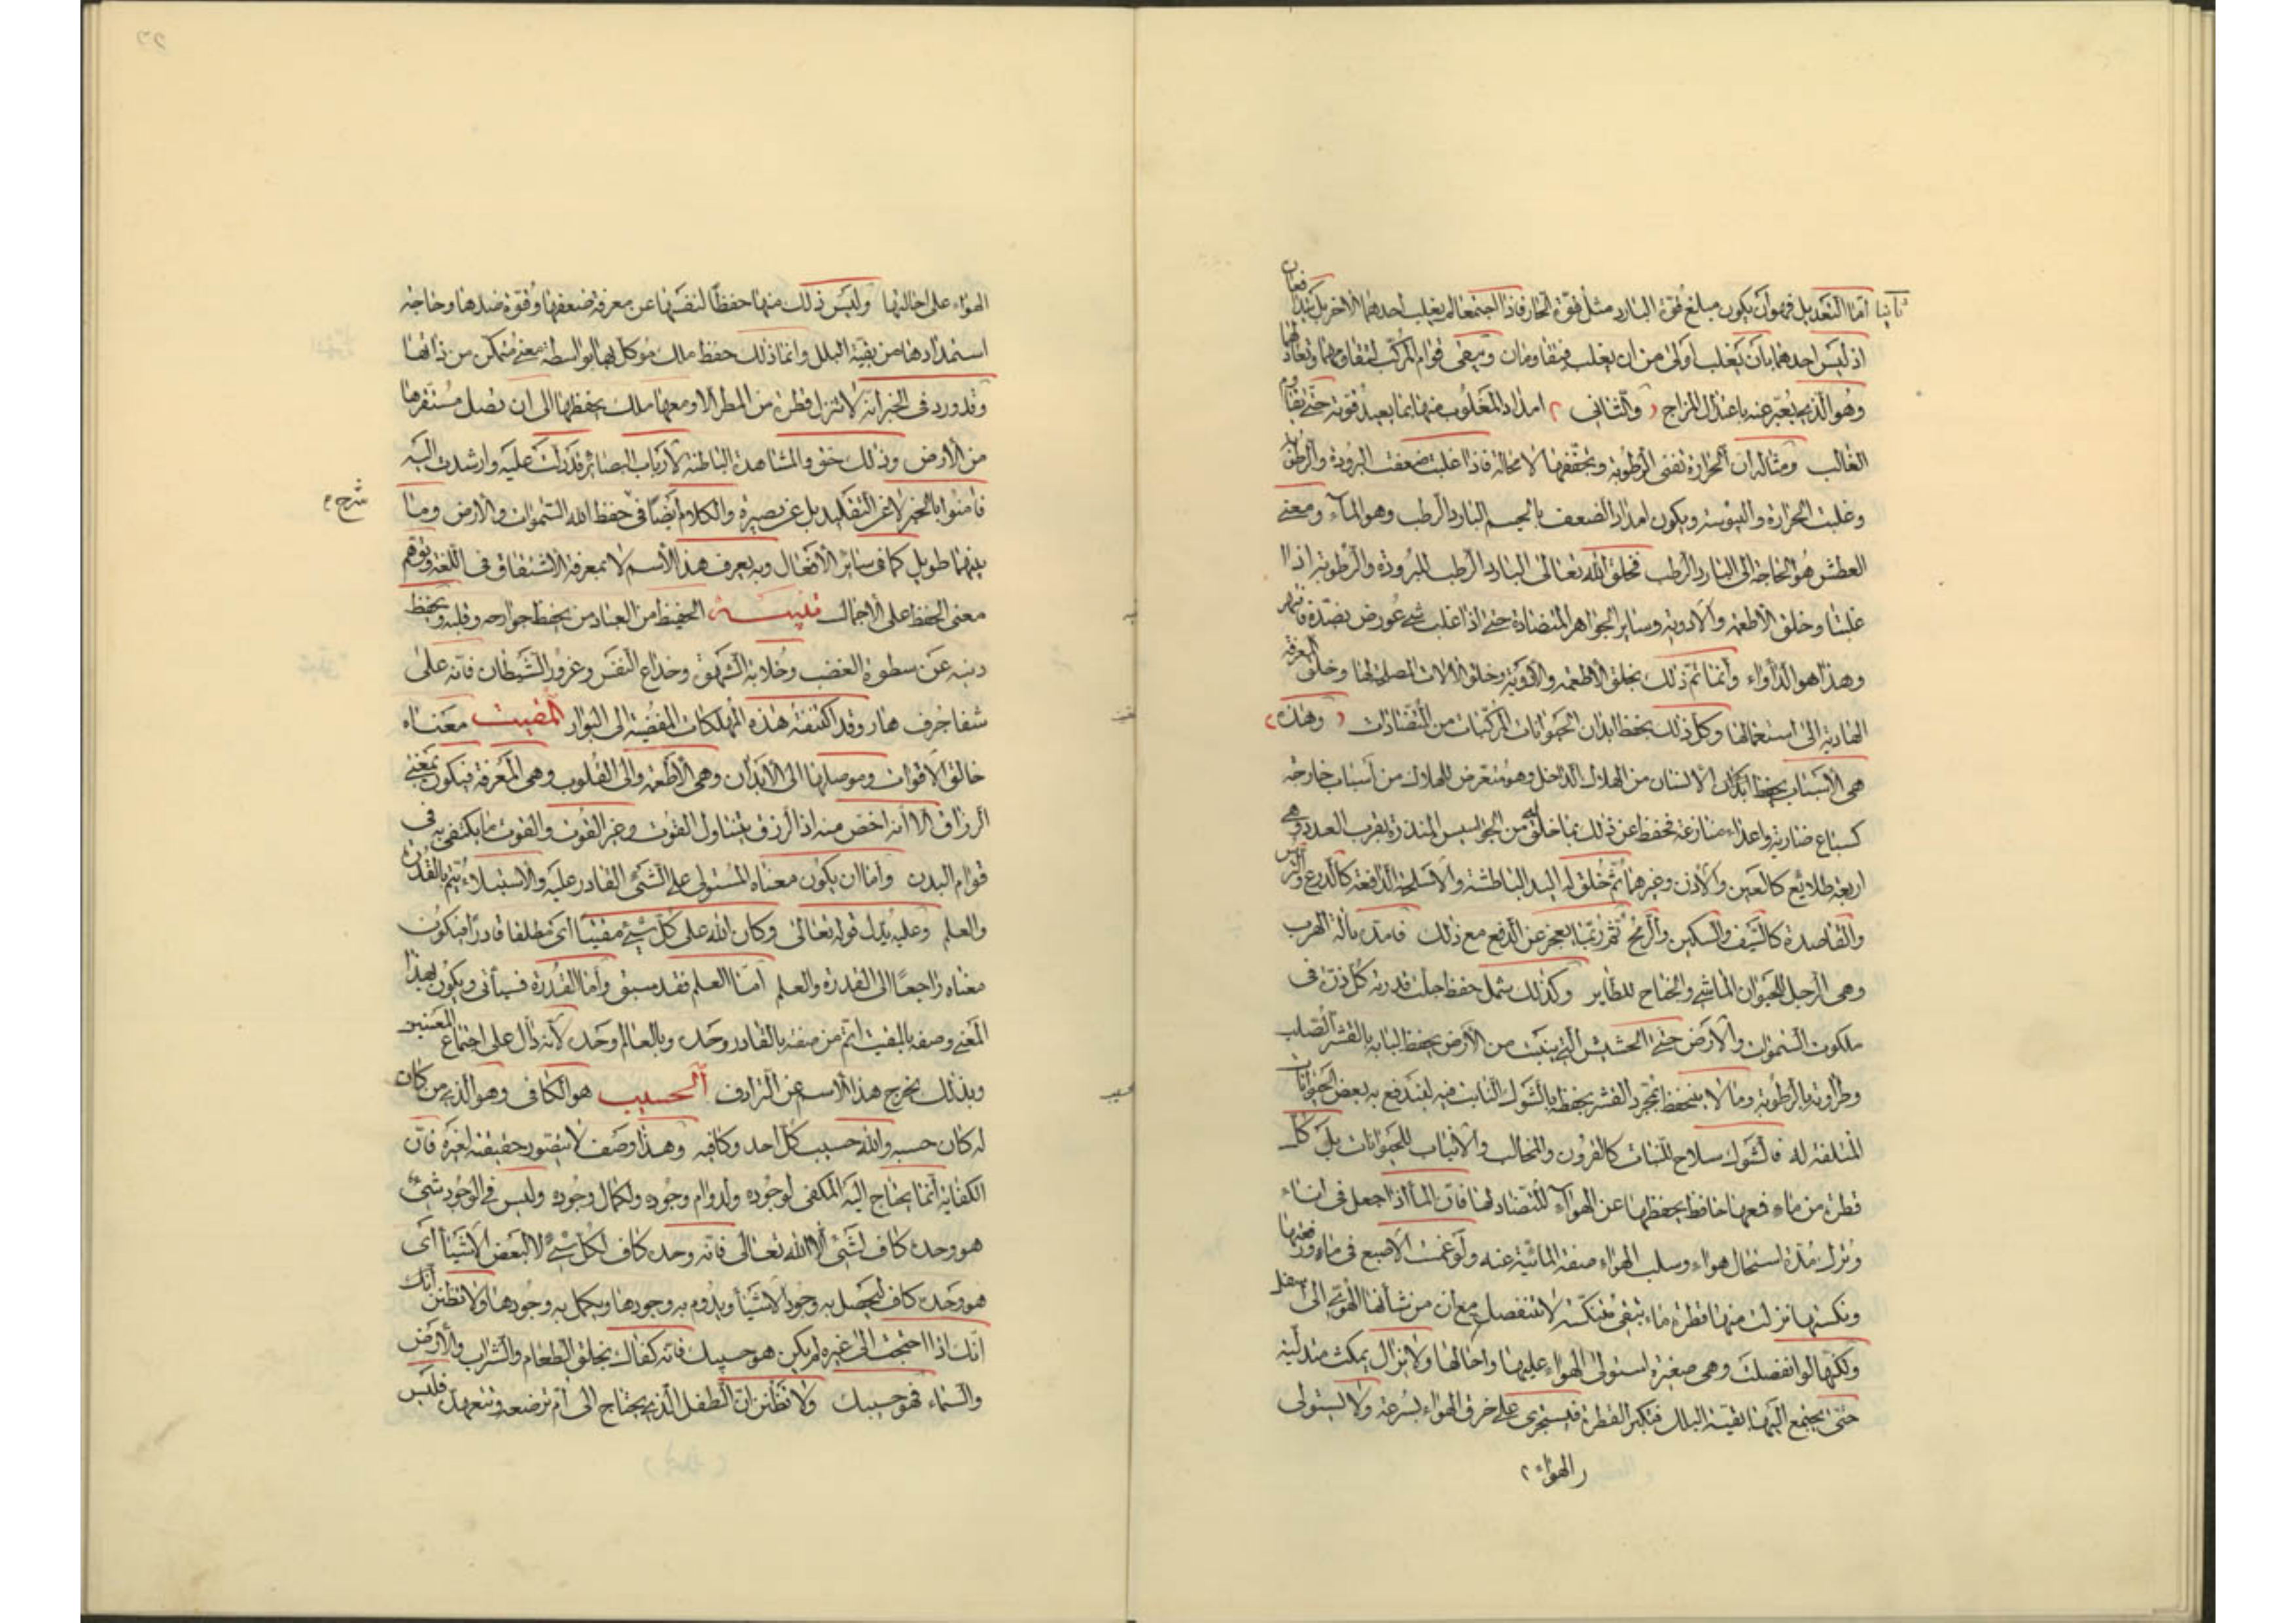 ثانيا اما التعديل فهو ان يكون مبلغ قوة البارد مثل قوة الحار فاذا اجتمعا لم يغلب احدهما الاخر بل يتدافعان
اذ ليس احدهما بان يغلب اولى من ان يغلب فيتقاومان ويبقى قوام المركب لتقاومهما وتعادلهما
وهو الذى يعبر عنه باعتدال المزاج والثانى امداد المغلوب منهما بما يعيد قوته حتى يقاوم
الغالب ومثاله ان الحرارة تفنى الرطوبة وتجففها لا محالة فاذا غلبت ضعفت البرودة والرطوبة
وغلبت الحرارة واليبوسة ويكون امداد الضعف بالجسم البارد الرطب وهو الماء ومعنى
العطش هو الحاجة الى البارد الرطب فخلق الله تعالى البارد الرطب للبرودة والرطوبة اذا
غلبتا وخلق الاطعمة والادوية وساير الجواهر المتضادة حتى اذا غلب شئ عورض بضده فانقهر
وهذا هو الدواء وانما تم ذلك بخلق الاطعمة والادوية وخلق الالات المصلحة لها وخلق المعرفة
الهادية الى استعمالها وكل ذلك بحفظ ابدان الحيوانات المركبات من المتضادات وهذه
هى الاسباب بحفظ ابدان الانسان من الهلاك الداخل وهو متعرض للهلاك من اسباب خارجة
كسباع ضارية واعداء منازعة فحفظ عن ذلك بما خلق له من الجواسيس المنذرة بقرب العدو وهى
اربعة طلايع كالعين والاذن وغيرهما ثم خلق له اليد الباطشة والاسلحة الدافعة كالدرع والترس
والقاصدة كالسيف والسكين والرمح ثم ربما يعجز عن الدفع مع ذلك فامد بآلة الهرب
وهى الرجل للحيوان الماشى والجناح للطاير وكذلك شمل حفظ جلت قدرته كل ذرة فى
ملكوت السموات والارض حتى الحشيش التى ينبت من الارض يحفظ لبابه بالقشر الصلب
وطراوته بالرطوبة وما لا ينحفظ بمجرد القشر يحفظه بالشوك النابت فيه ليندفع به بعض الحيوانات
المتلفة له فالشوك سلاح للنبات كالقرون والمخالب والانياب للحيوانات بل كل
قطرة من ماء فمعها حافظ يحفظها عن الهواء المتضاد لها فان الماء اذا جعل فى اناء
وترك مدة استحال هواء وسلب الهواء صفة المائية عنه ولو غمست الاصبع فى ماء ورفعتها
ونكستها نزلت منها قطرة ماء تبقى متنكسة لا تنفصل مع ان من شانها الهوى الى اسفل
ولكنها لو انفصلت وهى صغيرة استولى الهواء عليها واحالها ولا يزال يمكث متدلية
حتى يجتمع اليها بقية البلل فتكبر القطرة فيستجرى على خرق الهواء بسرعة ولا يستولى
الهواء
الهواء على احالتها وليس ذلك منها حفظا لنفسها عن معرفة ضعفها وقوة ضدها وحاجة
استمدادها من بقية البلل وانما ذلك حفظ ملك موكل بها بواسطة معنى متمكن من ذاتها
وقد ورد فى الخبر انه لا تنزل قطرة من المطر الا ومعها ملك يحفظها الى ان تصل مستقرها
من الارض وذلك حق والمشاهدة الباطنة لارباب البصائر قد دلت عليه وارشدت اليه
فامنوا بالخبر لا عن التقليد بل عن بصيرة والكلام ايضا فى حفظ الله السموات والارض وما
شرح
بينهما طويل كما فى ساير الافعال وبه يعرف هذا الاسم لا بمعرفة الاشتقاق فى اللغة وتوهم
معنى الحفظ على الاجمال تنبيه الحفيظ من العباد من يحفظ جوارحه وقلبه ويحفظ
دينه عن سطوة الغضب وخلابة الشهوة وخداع النفس وغرور الشيطان فانه على
شفا جرف هار وقد اكتنفته هذه المهلكات المفضية الى البوار المقيت معناه
خالق الاقوات وموصلها الى الابدان وهى الاطعمة والى القلوب وهى المعرفة فيكون بمعنى
الرزاق الا انه اخص منه اذ الرزق يتناول القوت وغير القوت والقوت ما يكتفى به فى
قوام البدن واما ان يكون معناه المستولى على الشئ القادر عليه والاستيلاء يتم بالقدرة
والعلم وعليه يدل قوله تعالى وكان الله على كل شئ مقيتا اى مطلقا قادرا فيكون
معناه راجعا الى القدرة والعلم اما العلم فقد سبق واما القدرة فسيأتى ويكون بهذا
المعنى وصفه بالمقيت اتم من صفة بالقادر وحده وبالعالم وحده لانه دال على اجتماع المعنيين
وبذلك يخرج هذا الاسم عن الترادف الحسيب هو الكافى وهو الذى من كان
له كان حسبه والله حسيب كل احد وكافيه وهذا وصف لا يتصور حقيقته لغيره فان
الكفاية انما يحتاج اليه المكفى لوجوده ولدوام وجوده ولكمال وجوده وليس فى الوجود شئ
هو وحده كاف لشئ الا الله تعالى فانه وحده كاف لكل شئ لا لبعض الاشياء اى
هو وحده كاف ليحصل به وجود الاشياء ويدوم به وجودها ويكمل به وجودها ولا تظنن انك
انك اذا احتجت الى غيره لم يكن هو حسيبك فانه كفاك بخلق الطعام والشراب والارض
والسماء فهو حسيبك ولا تظنن ان الطفل الذى يحتاج الى ام ترضعه وتتعهده فليس